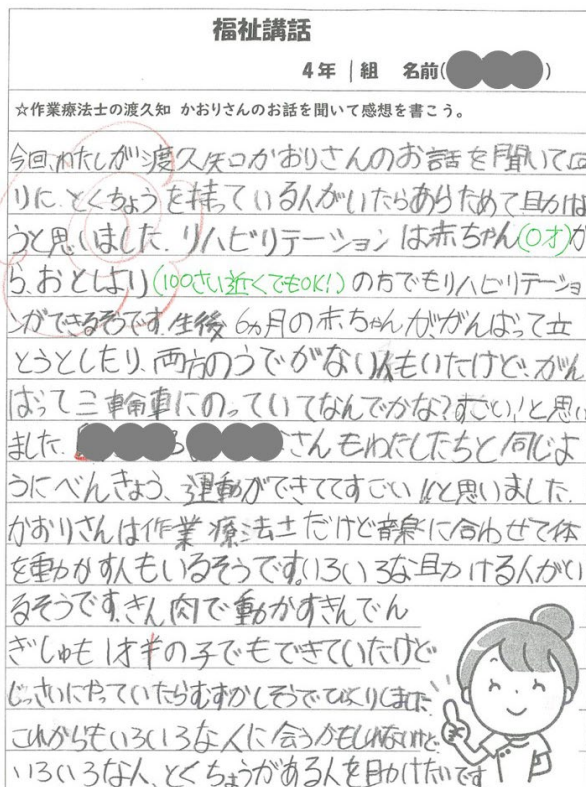 福祉講話
4年 1組 名前( )
☆作業療法士の渡久知 かおりさんのお話を聞いて感想を書こう。
今回、わたしが渡久知かおりさんのお話を聞いて回
りに、とくちょうを持っている人がいたらあらためて助けよ
うと思いました。リハビリテーションは赤ちゃん(0才)か
ら、おとしより(100さい近くてもOK!)の方でもリハビリテーショ
ンができるそうです。生後6ヵ月の赤ちゃんががんばって立
とうとしたり、両方のうでがない人もいたけど、がん
ばって三輪車にのっていてなんでかな?すごい!と思い
ました。 さんもわたしたちと同じよ
うにべんきょう、運動ができててすごい!!と思いました。
かおりさんは作業療法士だけど音楽に合わせて体
を動かす人もいるそうです。いろいろな助ける人がい
るそうです。きん肉で動かすきんでん
ぎしゅも1才半の子でもできていたけど
じっさいにやっていたらむずかしそうでびっくりしました。
これからもいろいろな人に会うかもしれないけど
いろいろな人、とくちょうがある人を助けたいです